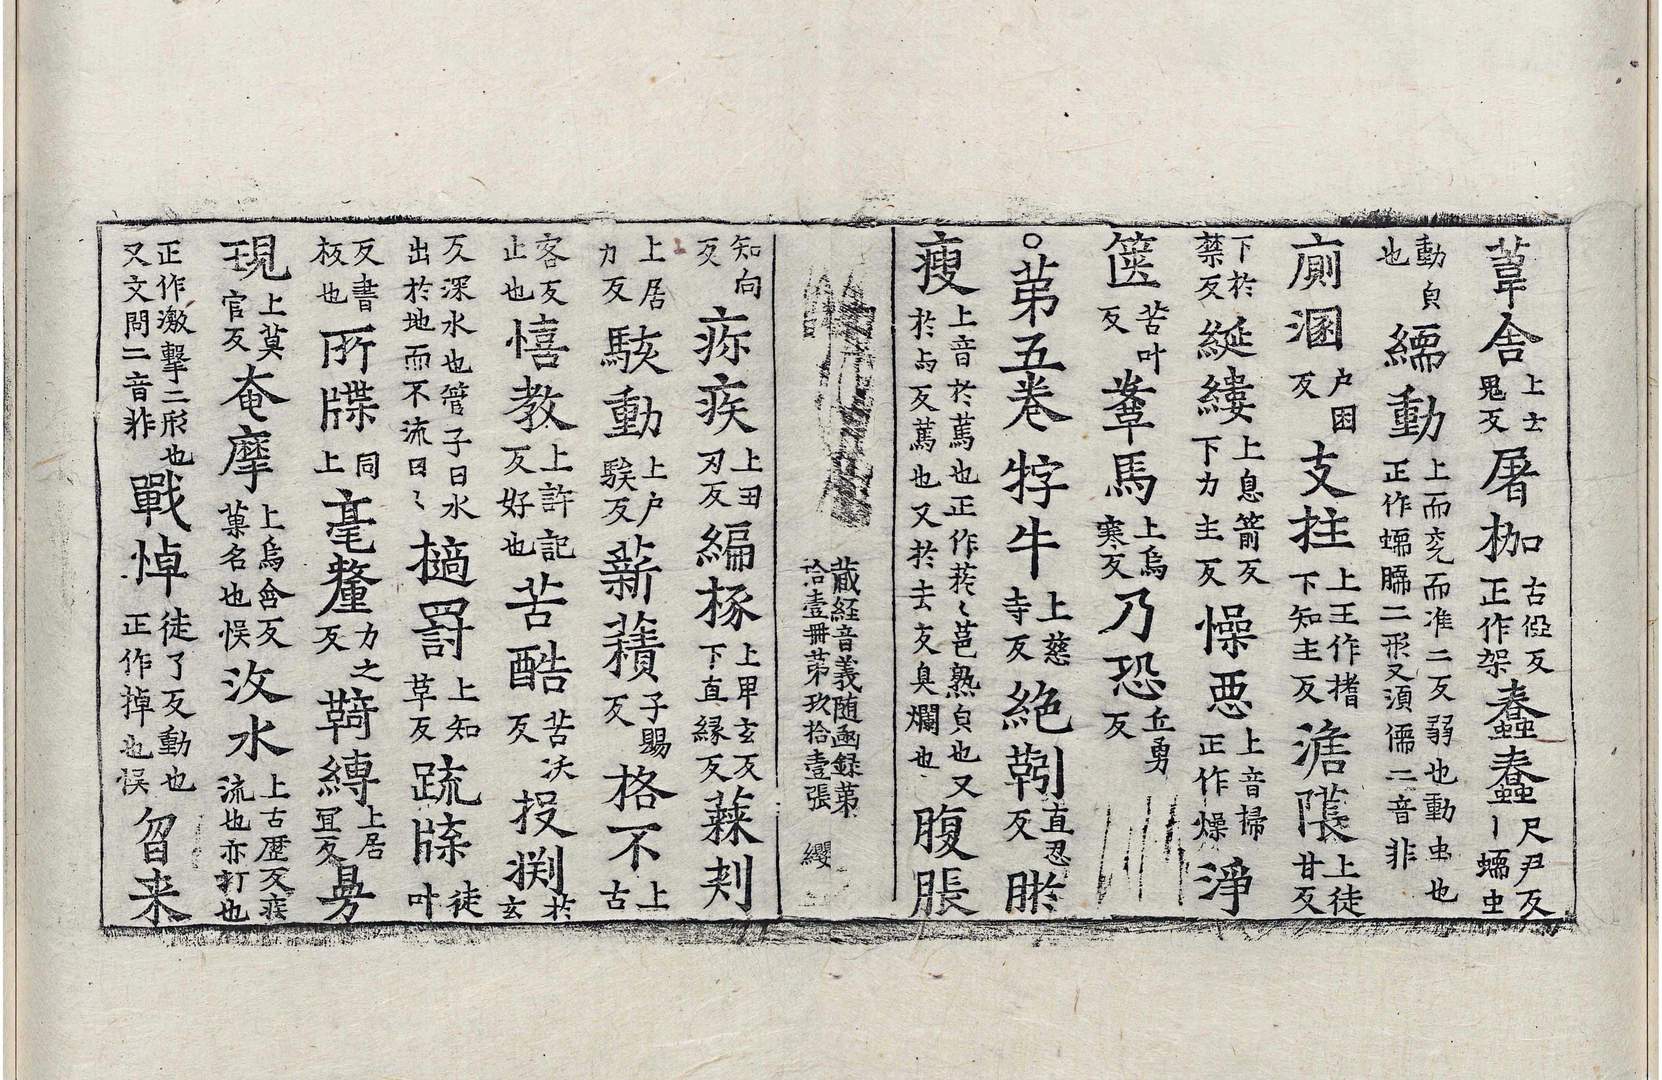 葦舍上士鬼反屠枷古㰺反正作架蠢蠢尺尹反丨蠕虫
動皃也蠕動上而兖而准二反弱也動虫也正作蝡䏰二形又須儒二音非
廁溷户困反支拄上王作揩下知主反澹𨼆上徒甘反
下於禁反綖縷上息箭反下力主反懆惡上音掃正作燥淨
篋苦叶反鞌馬上烏寒反乃恐丘勇反
○苐五卷牸牛上慈寺反絶靷直忍反瘀
瘦上音於蔫也正作菸〻萡熟皃也又於㐱反蔫也又於去反臭爛也腹脹
藏経音義随函録苐拾壹冊苐玖拾壹張 纓
知向反疢疾上丑刃反編椓上甲玄反下直縁反蔴刾
上居力反駭動上户騃反薪積子賜反格不上古
客反止也憘教上許記反好也苦酷苦沃反投渕於玄
反深水也管子曰水出於地而不流曰〻擿罰上知草反䟽牒徒叶
反書板也所牒同上毫釐力之反鞿縛上居冝反昮
現上莫官反奄摩上烏含反菓名也悮汥水上古歷反疾流也亦打也
正作激擊二形也又文問二音非戰悼徒了反動也正作掉也悮㫚来